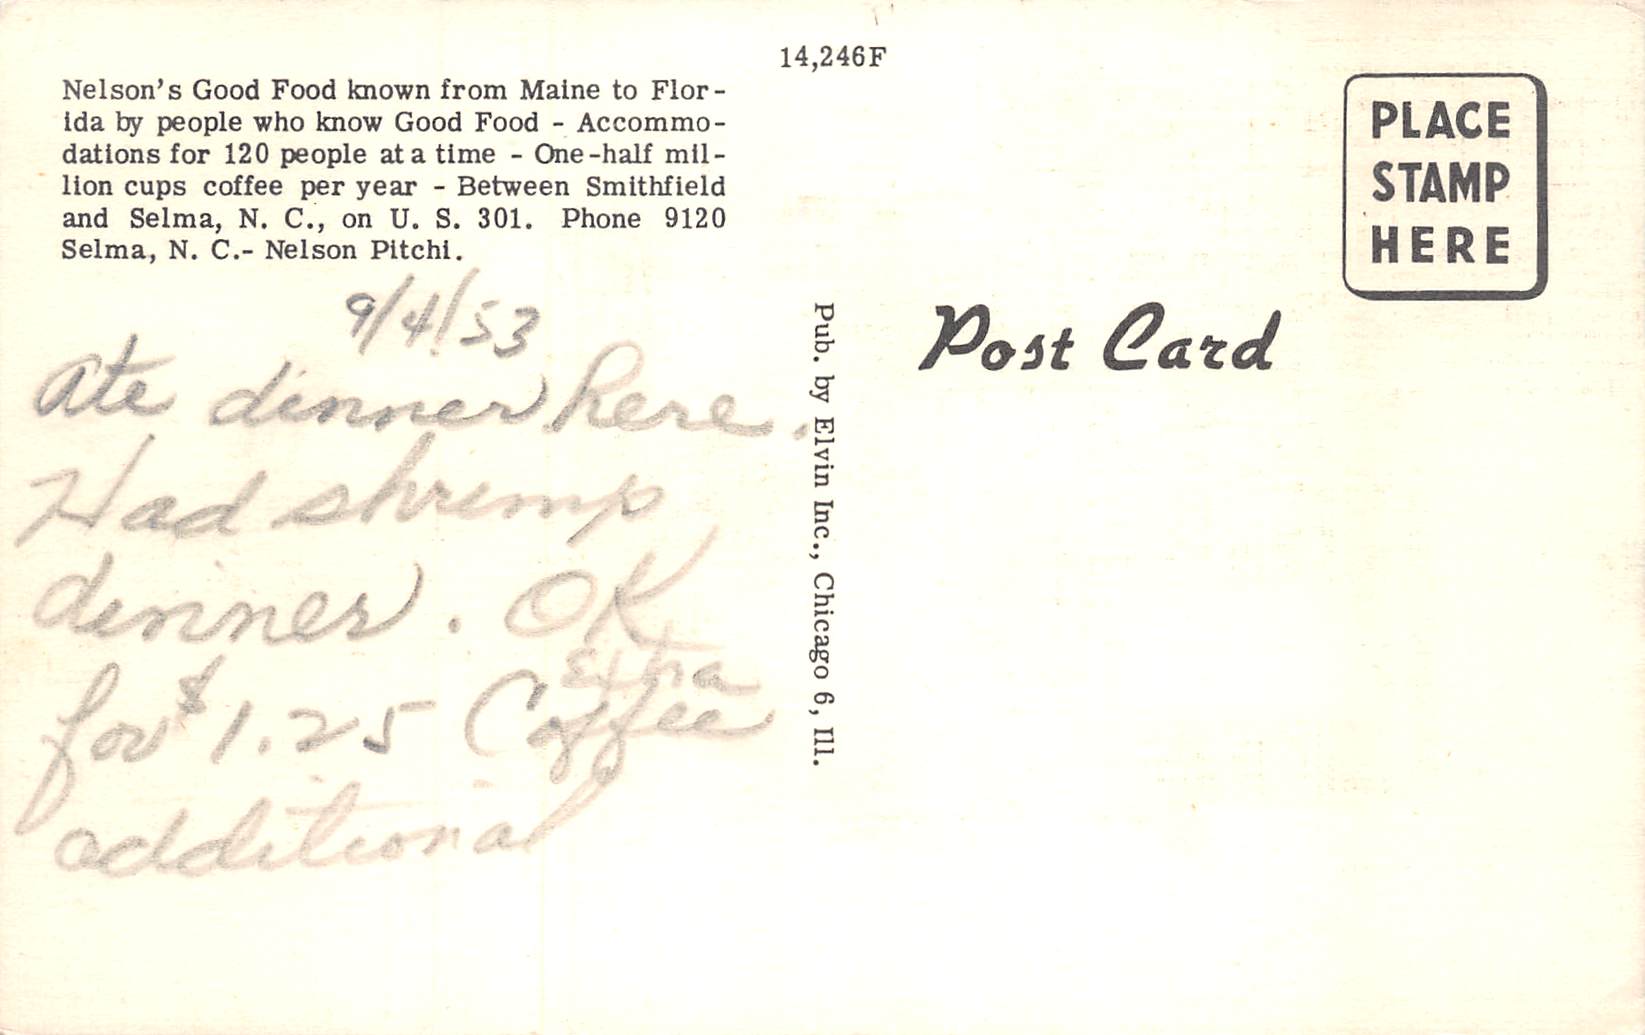 14,246F
Nelson's Good Food known from Maine to Flor-
ida by people who know Good Food - Accommo-
dations for 120 people at a time - One-half mil-
lion cups coffee per year - Between Smithfield
and Selma, N. C., on U. S. 301. Phone 9120
Selma, N. C.- Nelson Pitchi.
9/4/53
Ate dinner here.
Had shrimp
dinner. OK
for $1.25 Coffee
Extra
additional
Pub. by Elvin Inc., Chicago 6, Ill.
Post Card
PLACE
STAMP
HERE